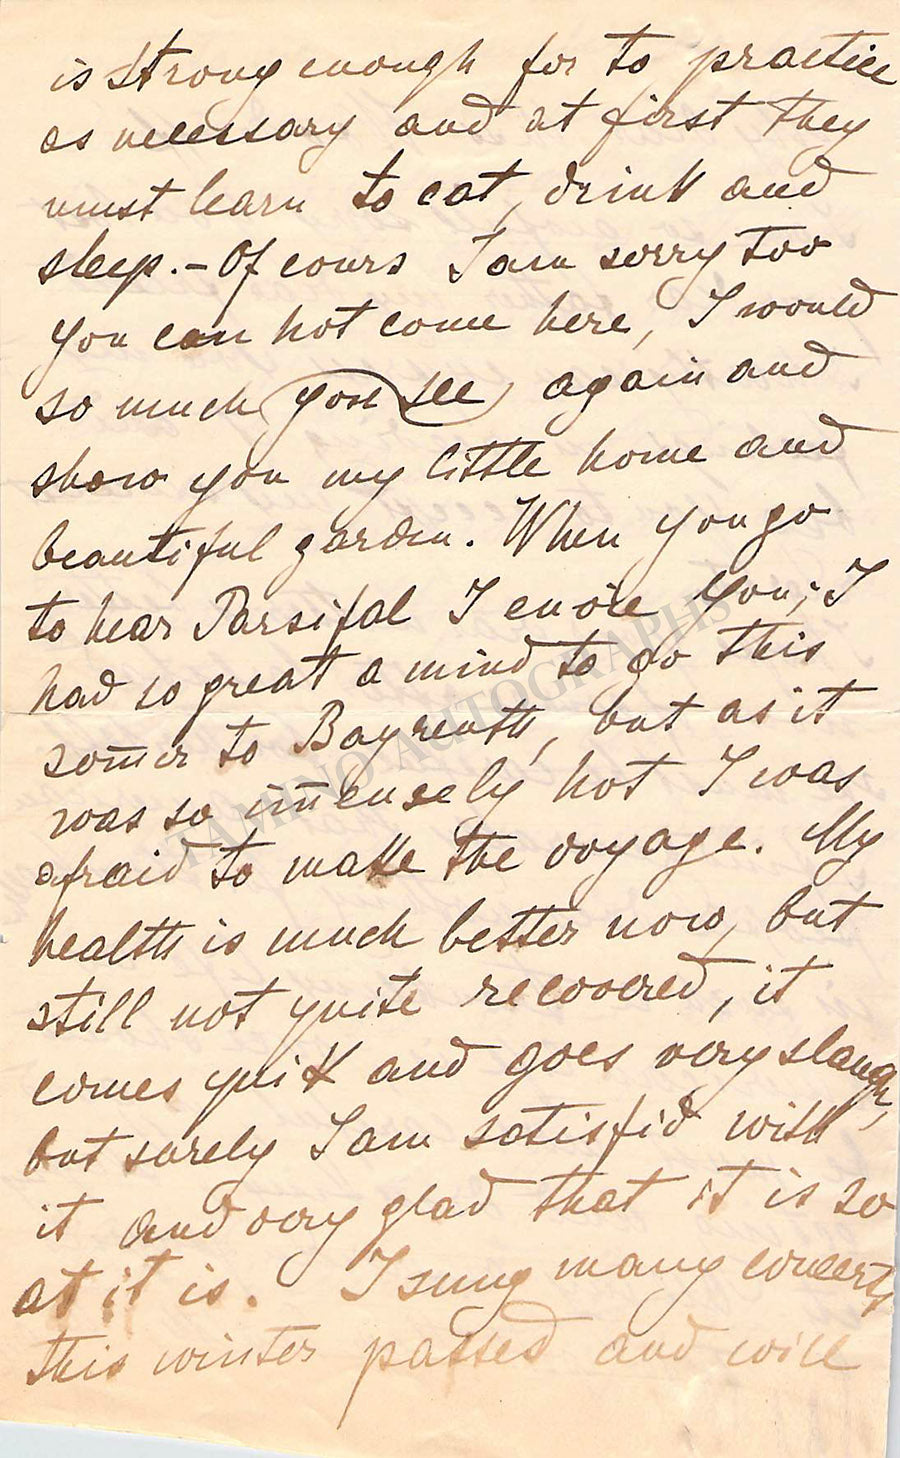 is strong enough for to practice
as necessary and at first they
must learn to eat, drink and
sleep. – Of cours I am sorry too
you can not come here, I would
so much you see again and
show you my little home and
beautiful garden. When you go
to hear Parsifal I envie you; I
had so great a mind to go this
som̄er to Bayreuth, but as it
was so im̄ensely hot I was
afraid to make the voyage. My
health is much better now, but
still not quite recovered, it
comes quik and goes very slaugh,
but surely I am satisfid with
it and very glad that it is so
at it is. I sung many concerts
this winter passed and will
TAMINO AUTOGRAPHS